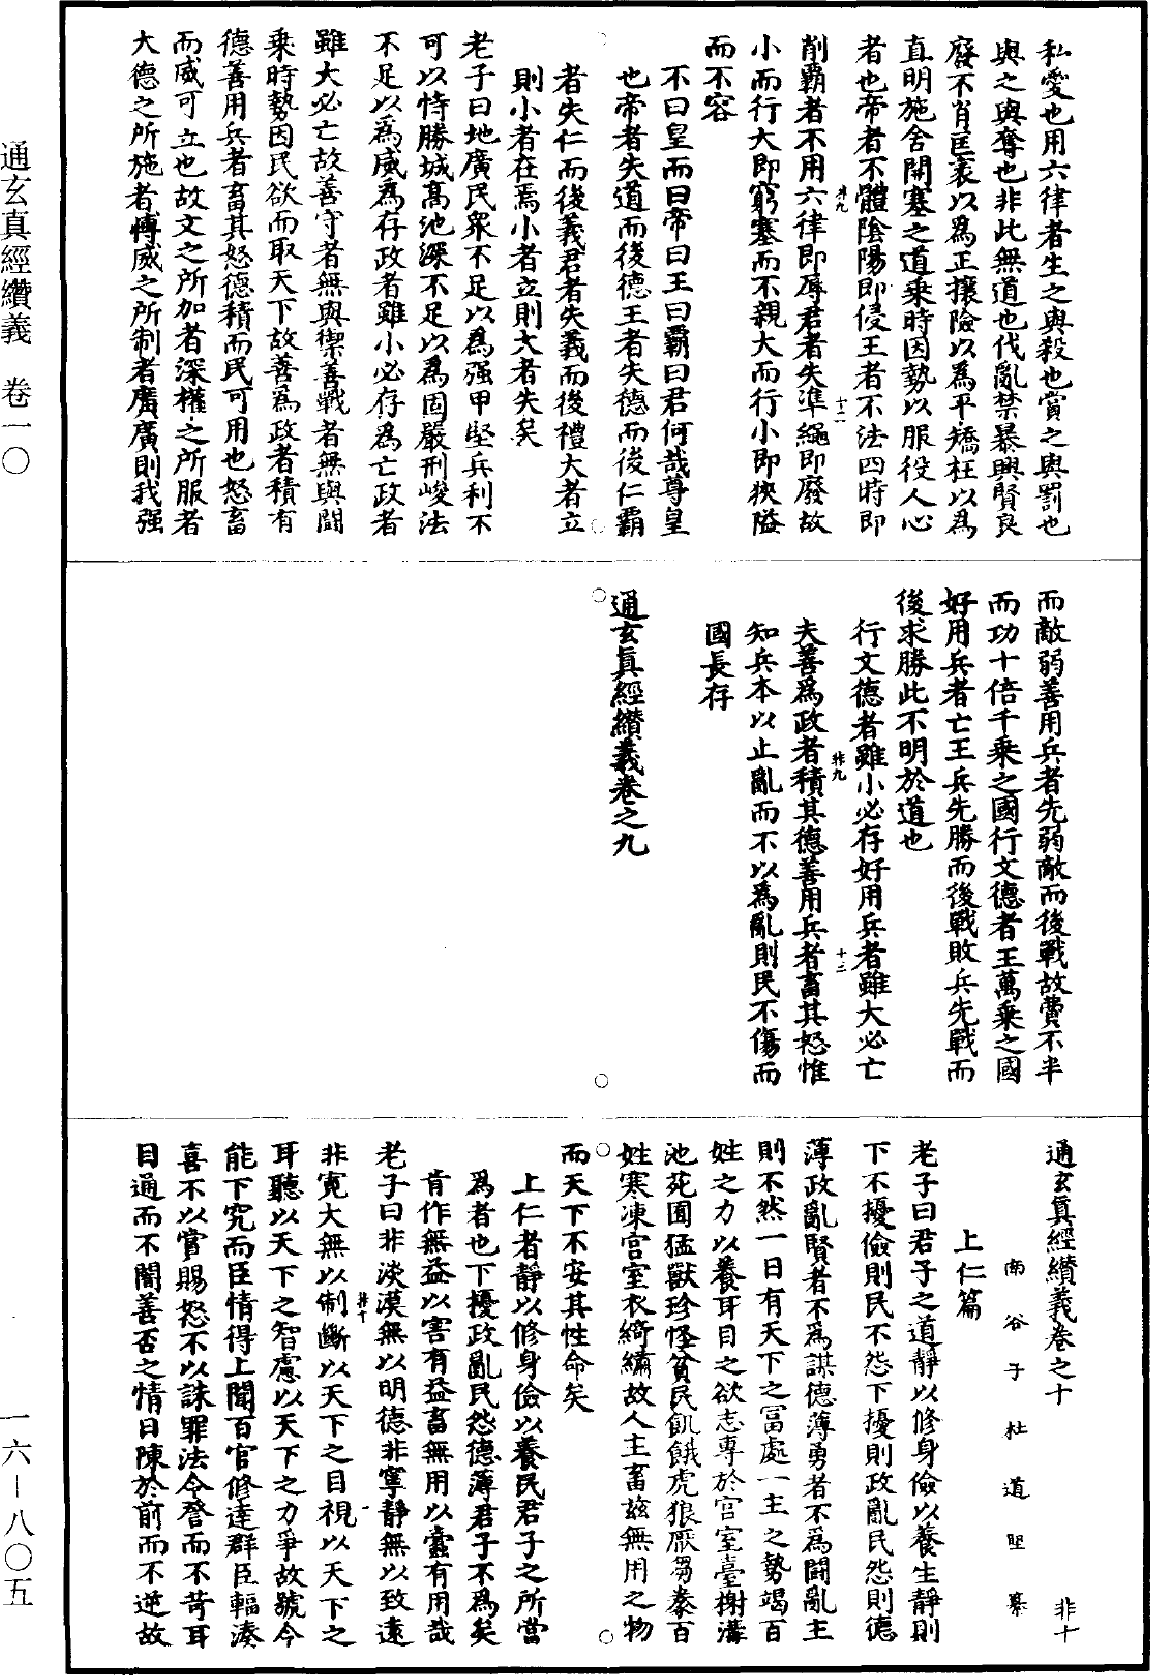 私愛也用六律者生之與殺也賞之與罰也
與之與奪也非此無道也伐亂禁暴興賢良
廢不肖匡衺以為正攘險以為平矯枉以為
直明施舍開塞之道乗時因勢以服役人心
者也帝者不體陰陽即侵王者不法四時即
削霸者不用六律即辱君者失準繩即廢故
小而行大即窮塞而不親大而行小即狹隘
而不容
不曰皇而曰帝曰王曰霸曰君何哉尊皇
也帝者失道而後德王者失德而後仁霸
者失仁而後義君者失義而後禮大者立
則小者在焉小者立則大者失矣
老子曰地廣民衆不足以為强甲堅兵利不
可以恃勝城高池深不足以為固嚴刑峻法
不足以為威為存政者雖小必存為亡政者
雖大必亡故善守者無與禦善戰者無與鬪
乗時勢因民欲而取天下故善為政者積有
德善用兵者畜其怒德積而民可用也怒畜
而威可立也故文之所加者深權之所服者
大德之所施者博威之所制者廣廣則我强
而敵弱善用兵者先弱敵而後戰故費不半
而功十倍千乗之國行文德者王萬乗之國
好用兵者亡王兵先勝而後戰敗兵先戰而
後求勝此不明於道也
行文德者雖小必存好用兵者雖大必亡
夫善為政者積其德善用兵者畜其怒惟
知兵本以止亂而不以為亂則民不傷而
國長存
通玄真經纘義卷之九
通玄真經纘義卷之十 非十
南谷子杜道堅纂
上仁篇
老子曰君子之道靜以修身儉以養生靜則
下不擾儉則民不怨下擾則政亂民怨則德
薄政亂賢者不為謀德薄勇者不為鬪亂主
則不然一日有天下之富處一主之勢竭百
姓之力以養耳目之欲志專於宮室臺榭溝
池苑囿猛獸珍怪貧民飢餓虎狼厭芻豢百
姓寒凍宮室衣綺繡故人主畜茲無用之物
而天下不安其性命矣
上仁者靜以修身儉以養民君子之所當
為者也下擾政亂民怨德薄君子不為矣
肯作無益以害有益畜無用以蠹有用哉
老子曰非淡漠無以明德非寧靜無以致遠
非寬大無以制斷以天下之目視以天下之
耳聽以天下之智慮以天下之力爭故號令
能下究而臣情得上聞百官修達群臣輻湊
喜不以賞賜怒不以誅罪法令詧而不苛耳
目通而不闇善否之情日陳於前而不逆故
通玄真經纘義　卷一〇
一六—八〇五